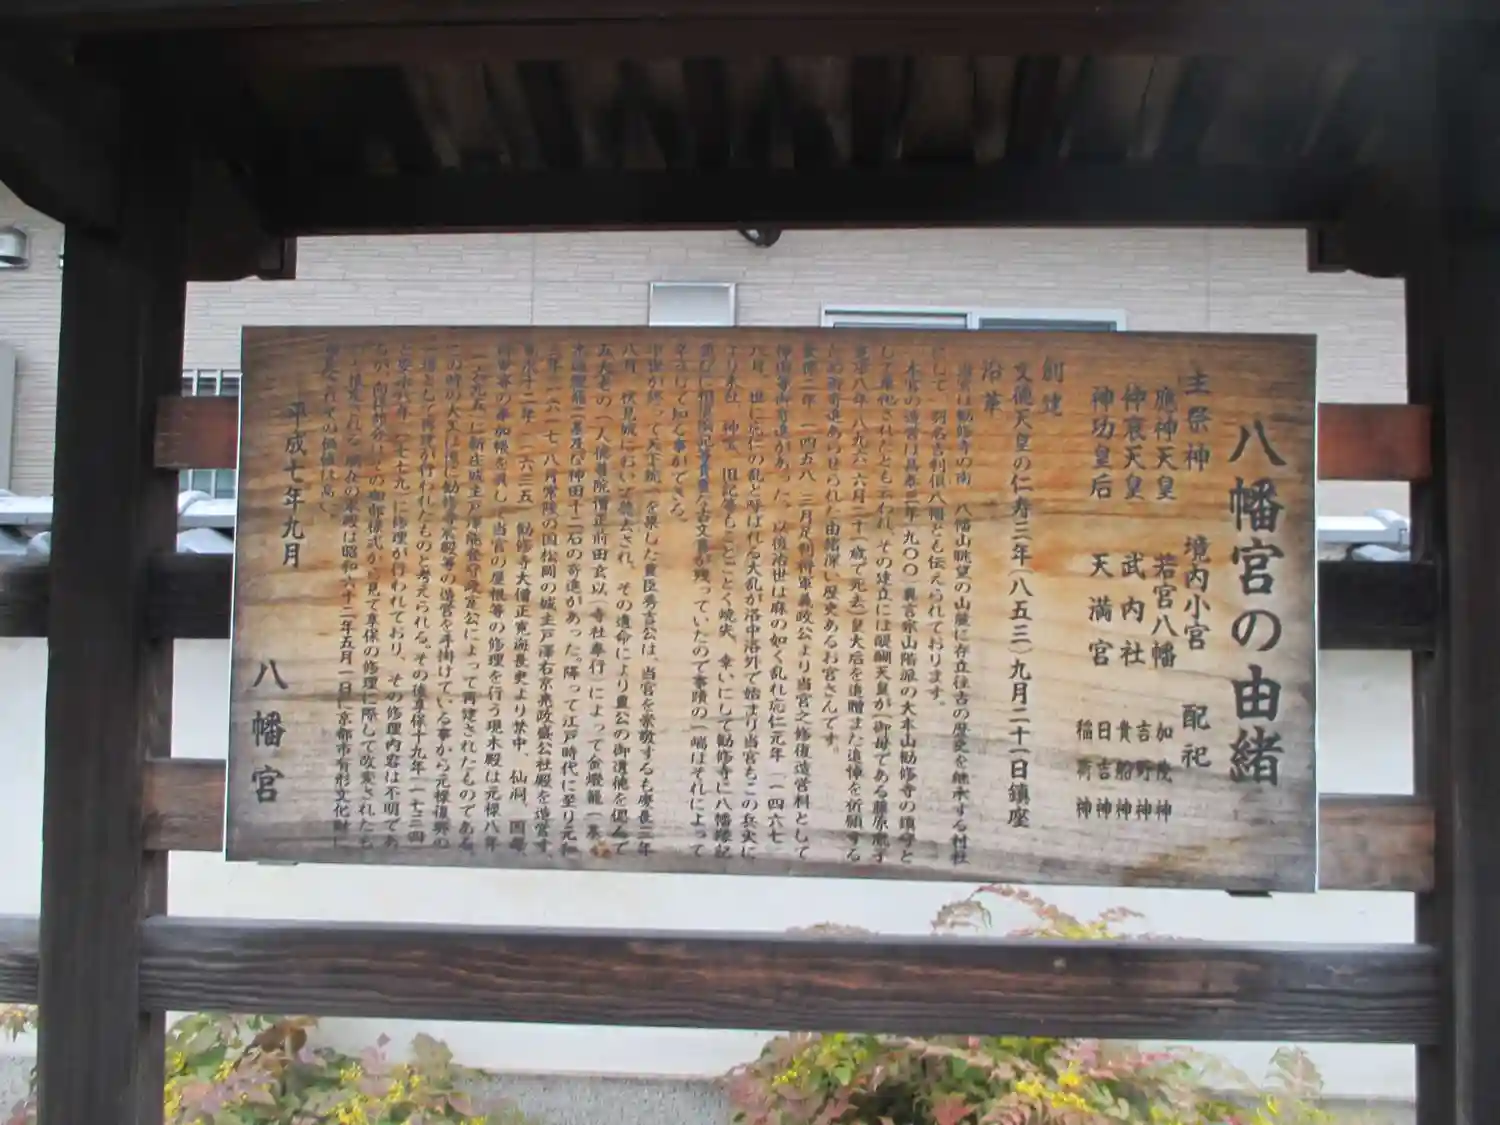 八幡宮の由緒
主祭神 境内小宮 配祀
應神天皇 若宮八幡 加茂神
吉野神
仲哀天皇 武内社 貴船神
日吉神
神功皇后 天満宮 稲荷神
創建
文徳天皇の仁寿三年(八五三)九月二十一日鎮座
沿革
当宮は勧修寺の南、八幡山眺望の山麓に存立往古の歴史を継承する村社
にして、別名吉利倶八幡とも伝えられております。
本宮の造営は昌泰三年(九〇〇)真言宗山階派の大本山勧修寺の鎮守と
して奉祀されたとも云われ、その建立には醍醐天皇が(御母である藤原胤子
寛平八年(八九六)六月三十歳で死去)皇大后を追贈また追悼を祈願する
ため御寄進あらせられた由緒深い歴史あるお宮さんです。
長禄二年(一四五八)三月足利将軍義政公より当宮之修復造営料として
神馬等御寄進があった。以後治世は麻の如く乱れ応仁元年(一四六七)
八月、世に応仁の乱と呼ばれる大乱が洛中洛外で始まり当宮もこの兵火に
より本社、神宝、旧記等もことごとく焼失、幸いにして勧修寺に八幡縁記
並びに
古文書が残っていたので事蹟の一端はそれによって
辛うじて知る事ができる。
中世が終って天下統一を果した豊臣秀吉公は、当宮を崇敬するも慶長三年
八月、伏見城において薨去され、その遺命により豊公の御遺徳を偲んで
五大老の一人徳善院僧正前田玄以(寺社奉行)によって金燈籠一基
石燈籠一基及び神田十二石の寄進があった。降って江戸時代に至り元和
三年(一六一七)八月常陸の国松岡の城主戸澤右京亮政盛公社殿を造営す、
寛永十二年(一六三五)勧修寺大僧正寛海長吏より禁中、仙洞、国母、
の奉加帳を賜し、当宮の屋根等の修理を行う現本殿は元禄八年
(一六九五)に新庄城主戸澤能登守政定公によって再建されたものである。
この時の大工は
勧修寺宸殿等の造営を手掛けている事から元禄復興の
一環として再建が行われたものと考えられる。その後享保十九年(一七三四)
と安永八年(一七七九)に修理が行われており、その修理内容は不明であ
るが、向拝部分は
の細部様式から見て享保の修理に際して改変されたも
のと推定される。現在の本殿は昭和六十二年五月一日に京都市有形文化財に
その価値は高く。
平成七年九月
八幡宮